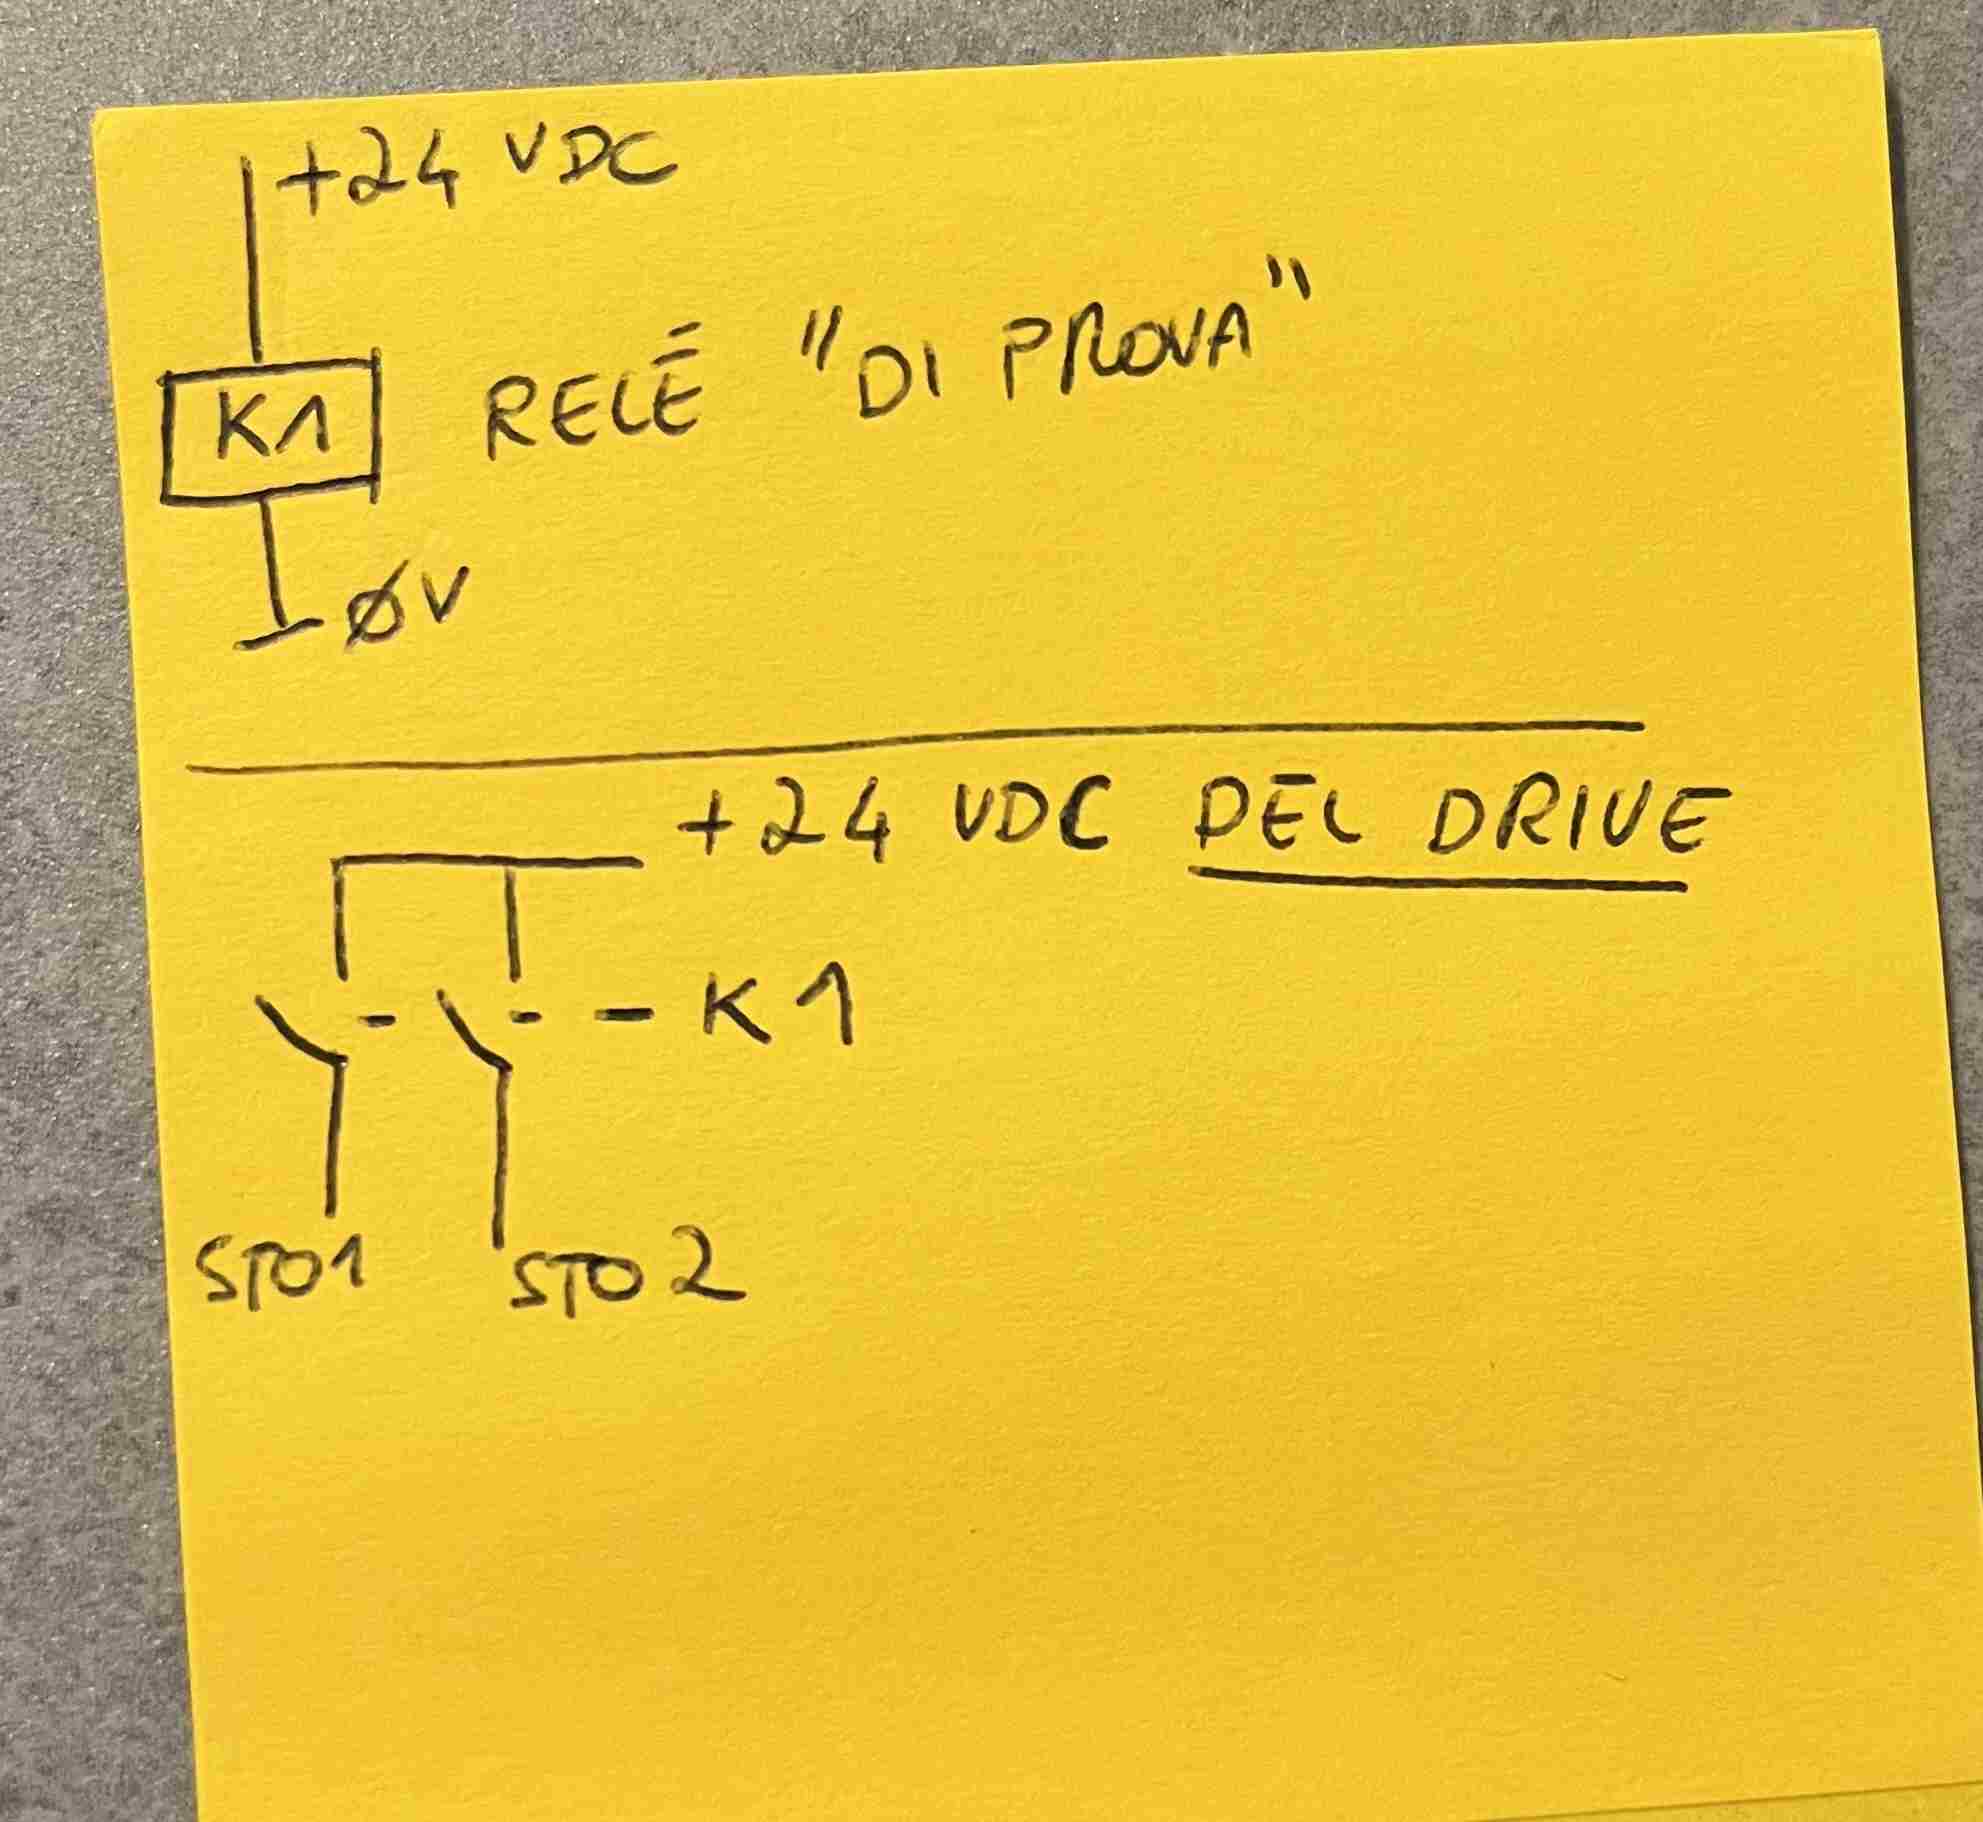 +24 VDC
K1 RELÉ "DI PROVA"
ØV
+24 VDC DEL DRIVE
K1
STO1 STO2